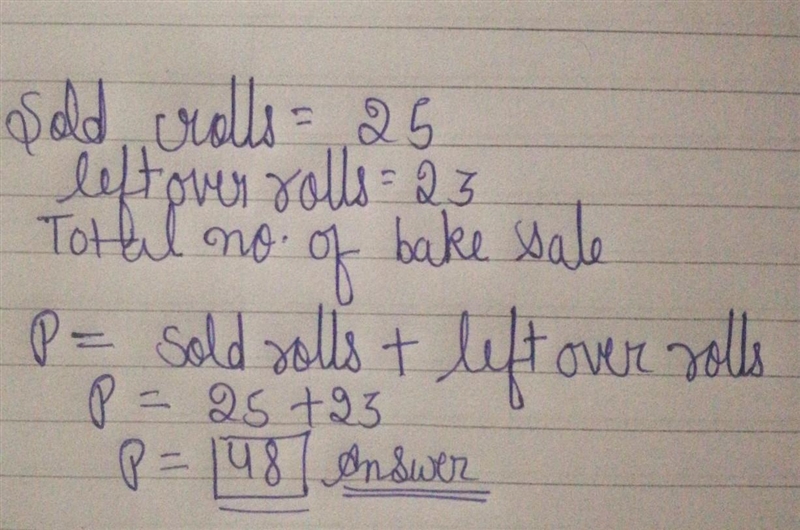 Sold rolls = 25
left over rolls = 23
Total no. of bake sale
P = sold rolls + left over rolls
P = 25 + 23
P = 48 Answer